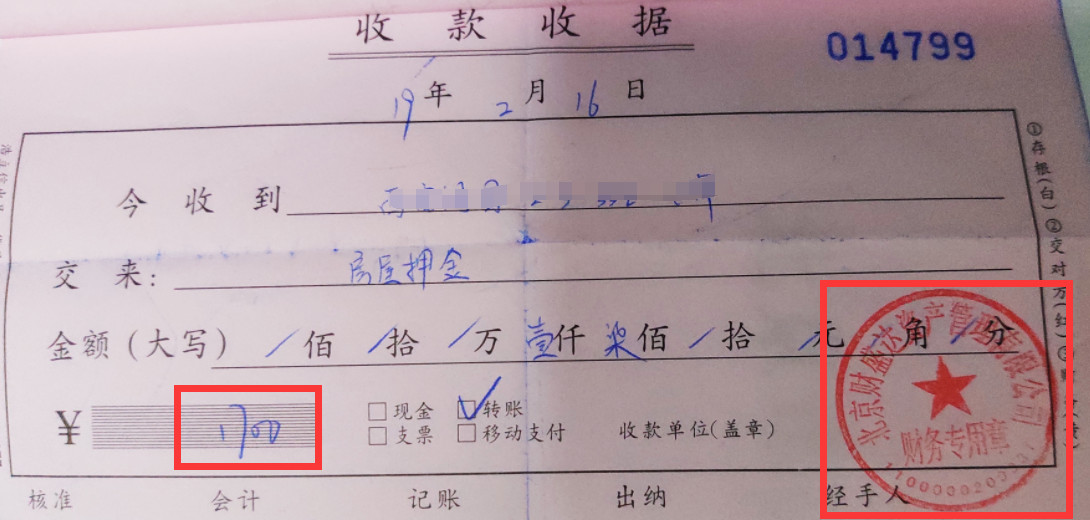 收款收据
014799
19年2月16日
今收到
交来：房屋押金
金额(大写) /佰/拾/万壹仟柒佰/拾/元/角/分
¥ 1700
□现金 ☑转账
□支票 □移动支付 收款单位(盖章)
核准 会计 记账 出纳 经手人
北京财盛达资产管理有限公司
财务专用章
①存根(白)②交对方(红)